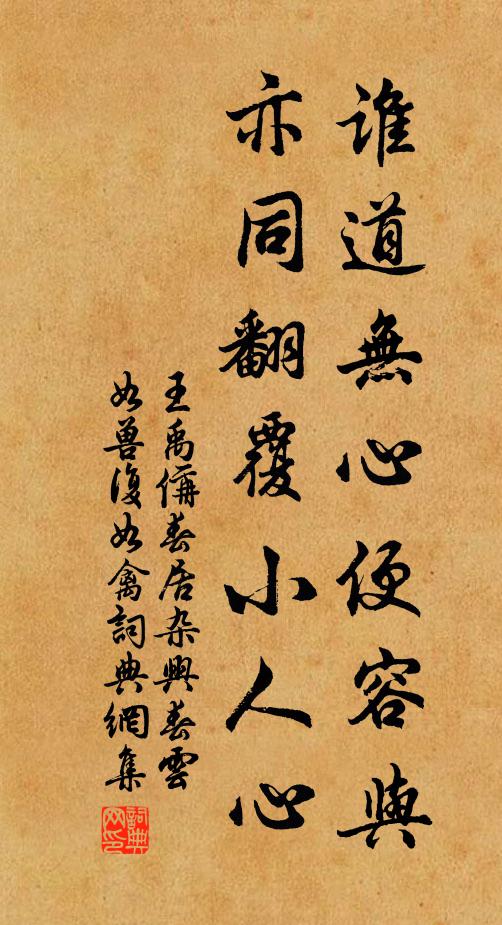 誰道無心便容與
亦同翻覆小人心
王禹偁春居杂興春雲
如兽復如禽詞典網集
詞典网印